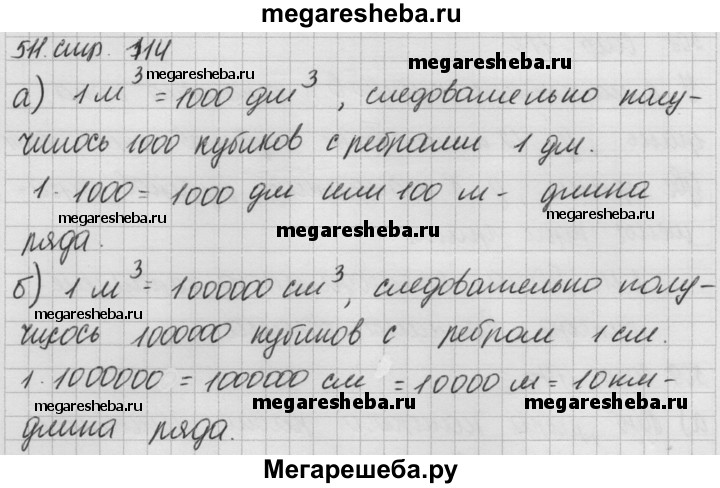 megaresheba.ru
511. стр. 114
megaresheba.ru
а) 1 м³ = 1000 дм³, следовательно полу-
megaresheba.ru
чилось 1000 кубиков с ребрами 1 дм.
1 · 1000 = 1000 дм или 100 м - длина
megaresheba.ru megaresheba.ru megaresheba.ru
ряда.
б) 1 м³ = 1000000 см³, следовательно полу-
megaresheba.ru
чилось 1000000 кубиков с ребром 1 см.
1 · 1000000 = 1000000 см = 10000 м = 10 км -
megaresheba.ru megaresheba.ru megaresheba.ru
длина ряда.
Мегарешеба.ру